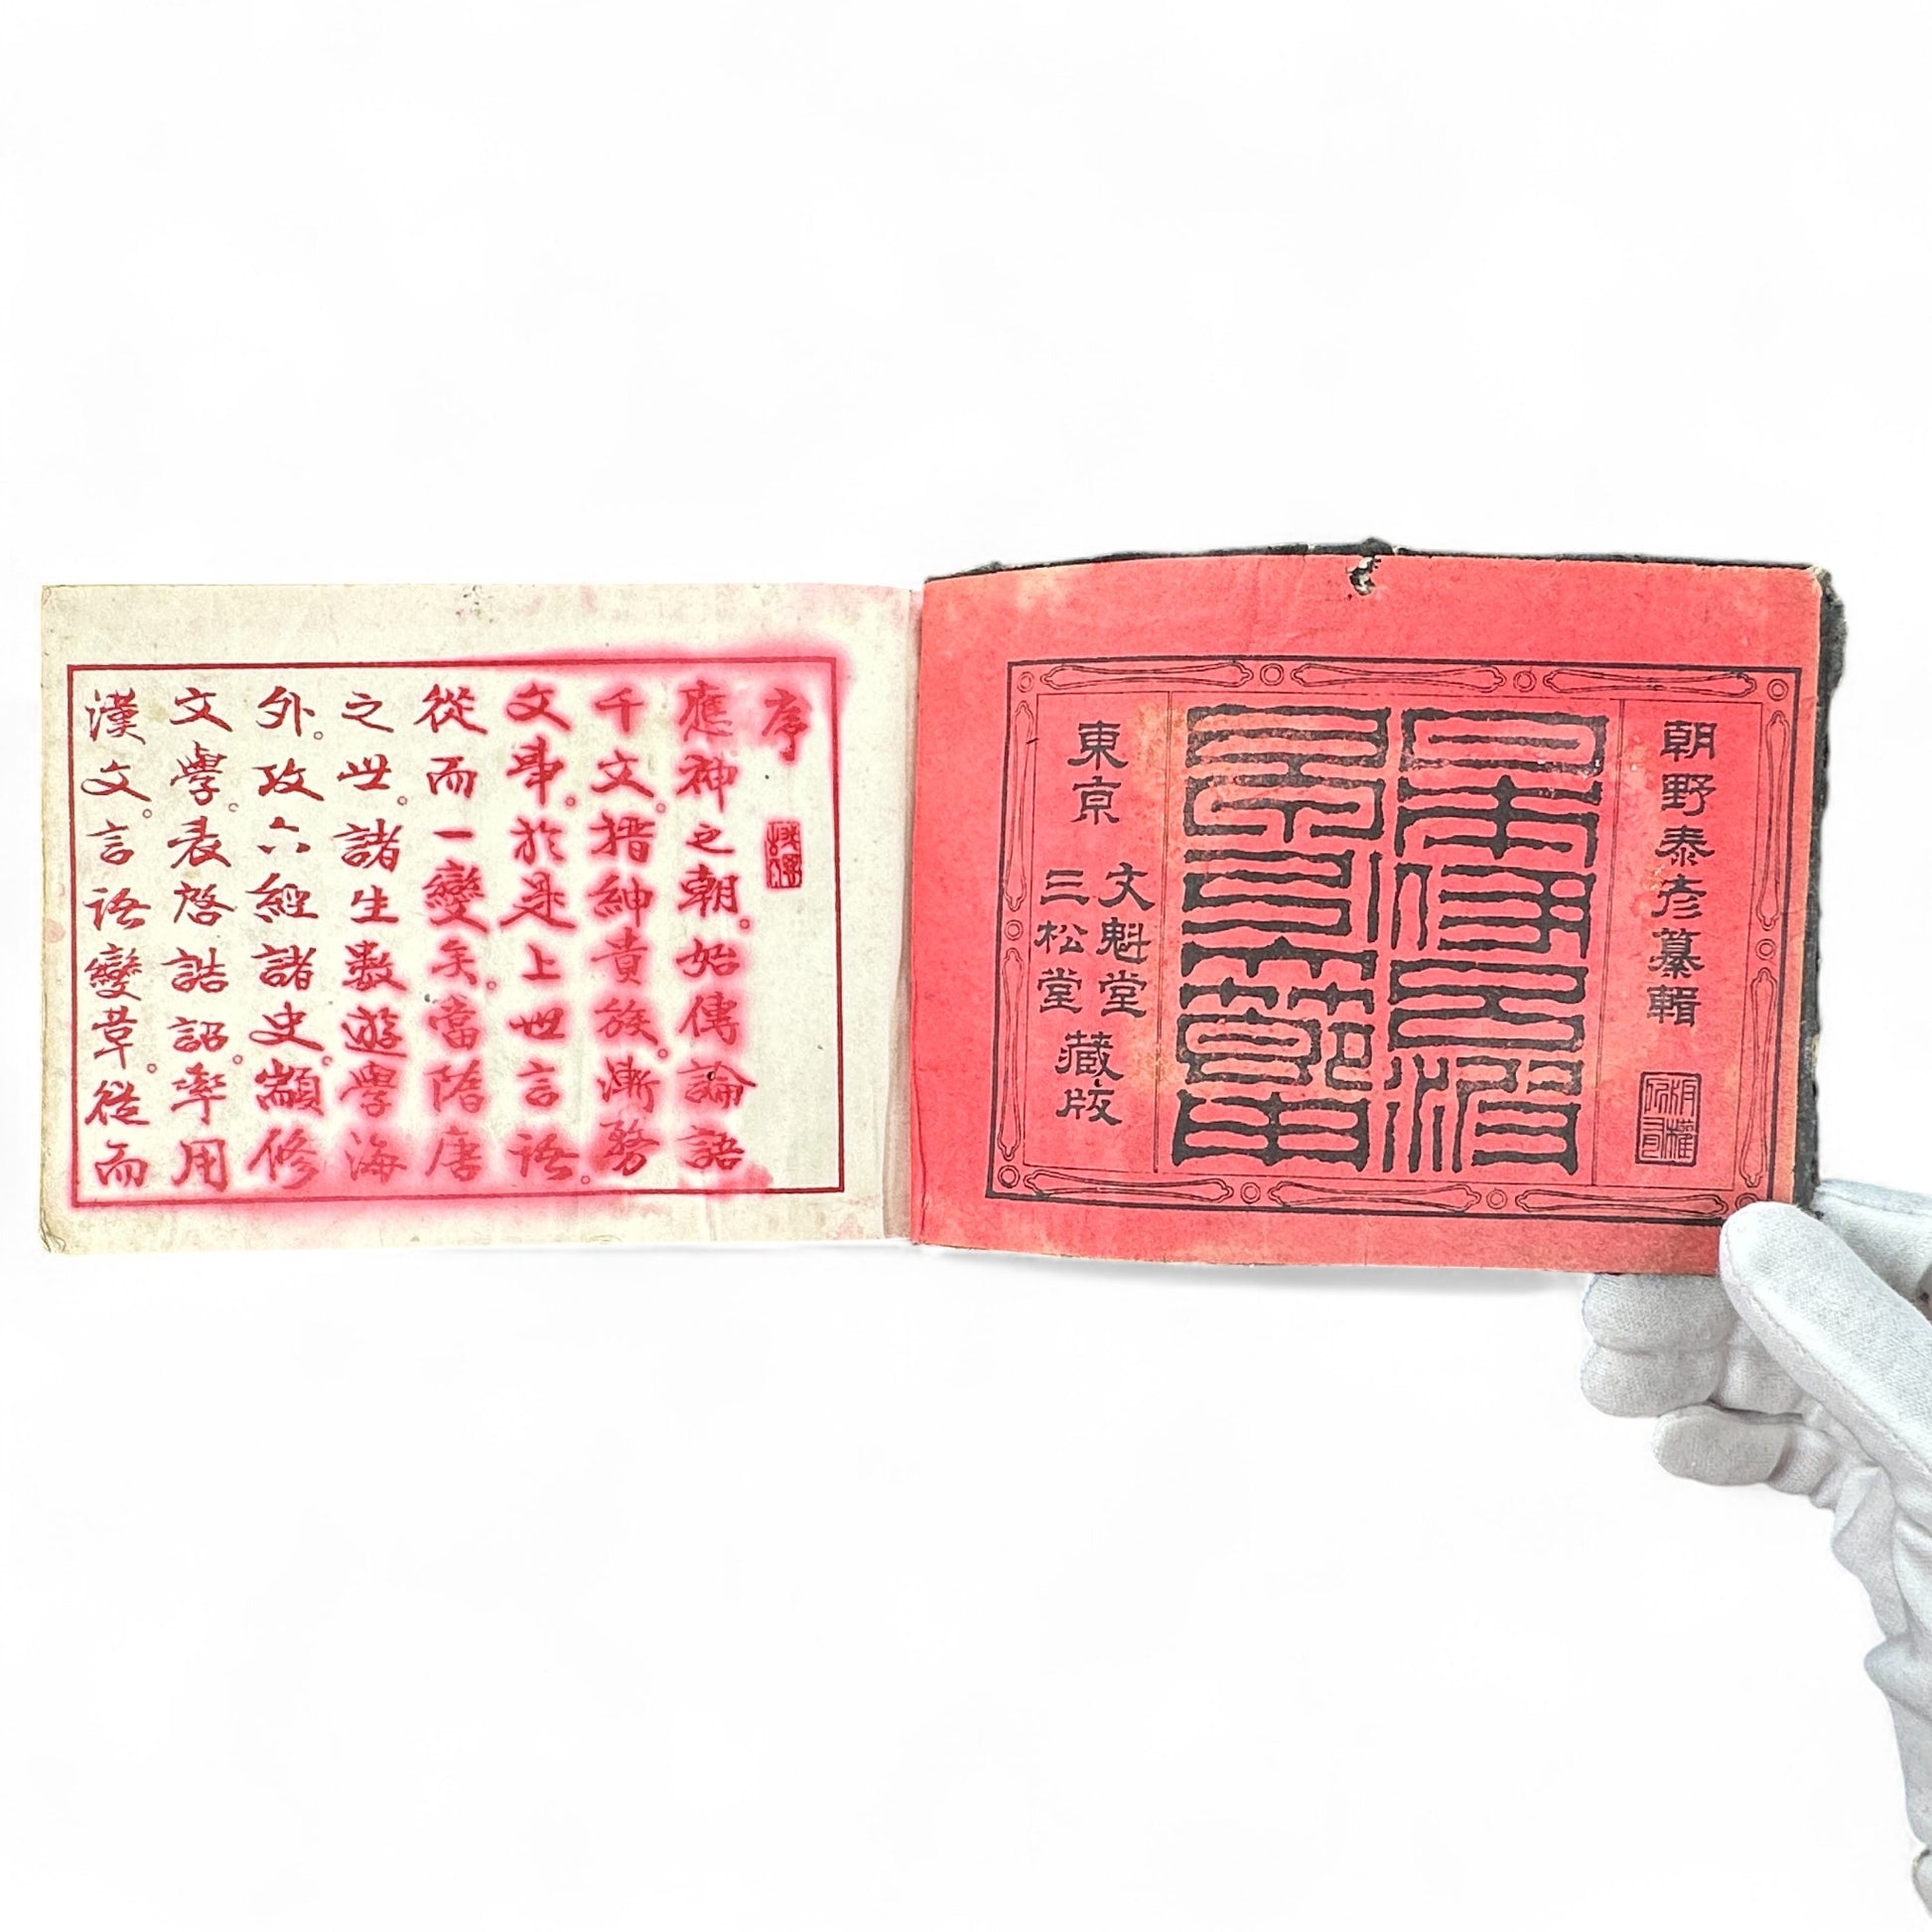 朝野泰彦纂輯
版權所有
東京
文魁堂
三松堂
藏版
序
應神之朝。始傳論語
千文。搢紳貴族。漸務
文事。於是上世言語。
從而一變矣。當隋唐
之世。諸生數遊學海
外。攻六經諸史。顓修
文學。表啓誥詔。率用
漢文。言語變革。從而